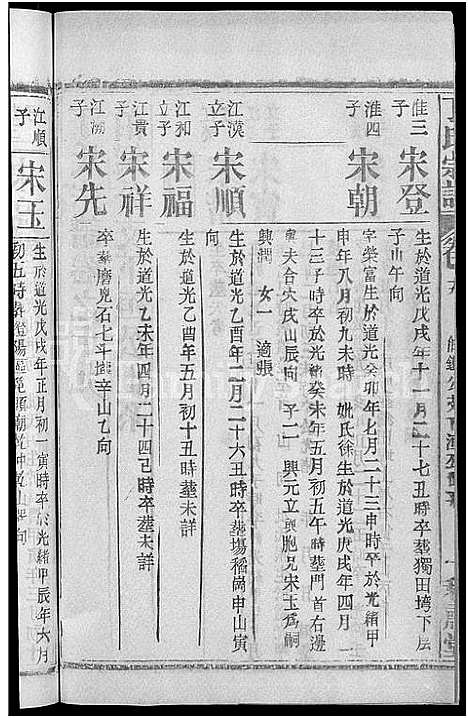 丁氏宗譜
淮三子
宋登
生於道光戊戌年十一月二十七丑時卒葬獨田垮下层
子山午向
淮四子
宋朝
字榮富生於道光癸卯年七月二十三申時卒於光緒甲
申年八月初九未時 妣氏徐生於道光庚戌年四月一
十三子時卒於光緒癸未年五月初五午時葬門首右邊
與夫合穴戌山辰向 子二 興元立與胞兄宋玉為嗣
興潤 女一 適張
江漢立子
宋順
生於道光乙酉年二月二十六丑時卒葬塲稻崗申山寅
向
江和立子
宋福
生於道光乙酉年五月初十丑時卒葬未詳
江貴子
宋祥
生於道光乙未年四月二十四己時卒葬未詳
江 子
宋先
卒葬磨見石七斗 辛山乙向
江順子
宋玉
生於道光戊戌年正月初一寅時卒於光緒甲辰年六月
初五時葬 向